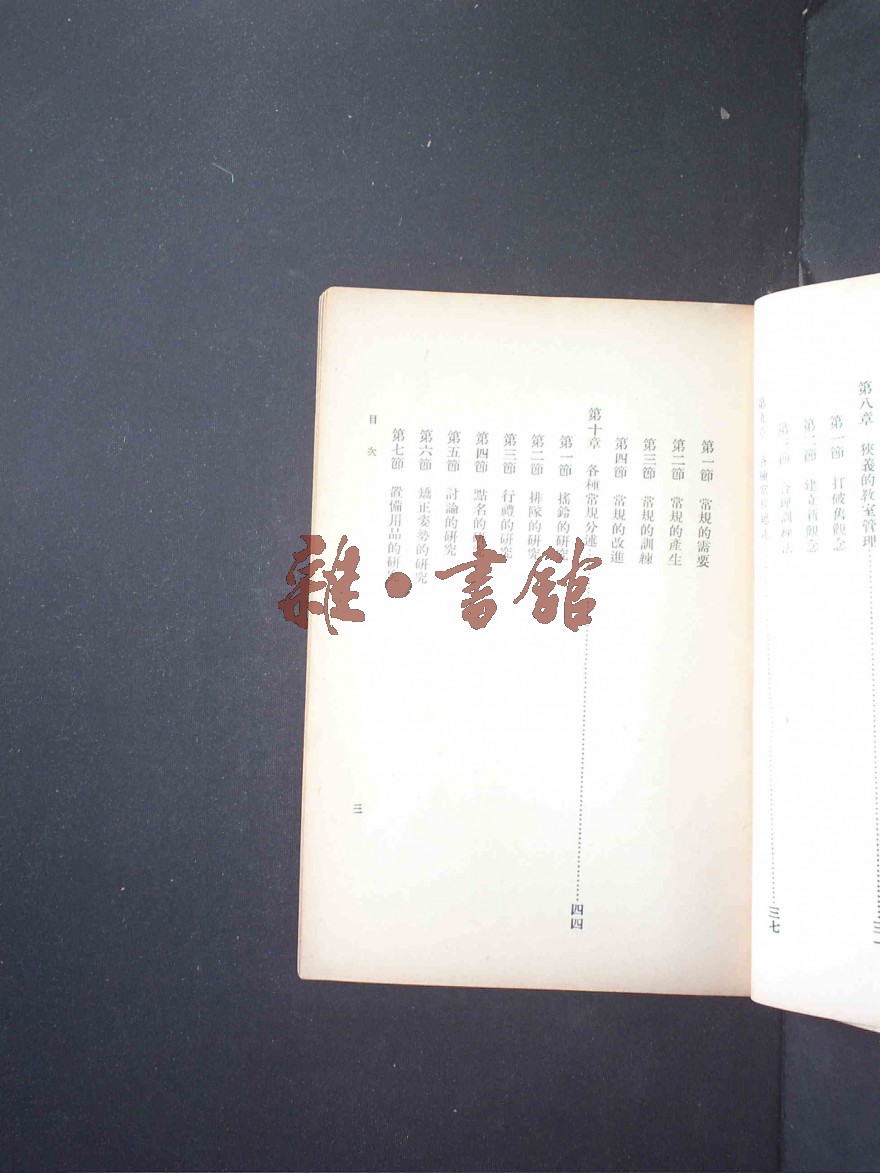 第八章　狹義的教室管理……三一
第一節　打破舊觀念
第二節　建立新觀念
第三節　合理訓練法
第九章　各種常規總述……三七
第一節　常規的需要
第二節　常規的產生
第三節　常規的訓練
第四節　常規的改進
第十章　各種常規分述……四四
第一節　搖鈴的研究
第二節　排隊的研究
第三節　行禮的研究
第四節　點名的研究
第五節　討論的研究
第六節　矯正姿勢的研究
第七節　置備用品的研
目次
三
雜·書館